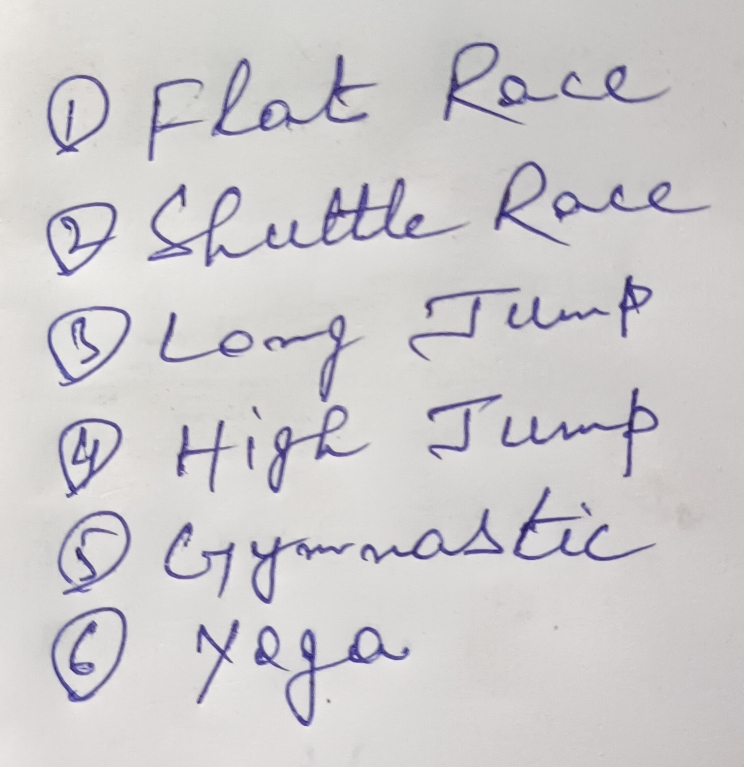 ① Flat Race
② Shuttle Race
③ Long Jump
④ High Jump
⑤ Gymnastic
⑥ Yoga